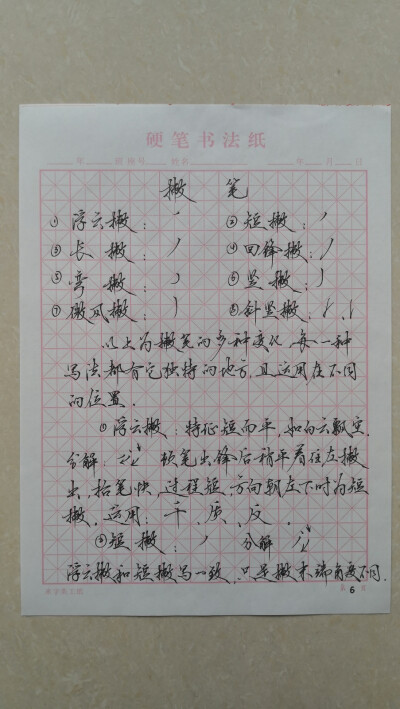 硬笔书法纸
年 班 编号 姓名 年 月 日
撇 笔
①浮云撇：丿 ②短撇：丿
③长撇：丿 ④回锋撇：丿
⑤弯撇：丿 ⑥竖撇：丿
⑦微风撇：丿 ⑧斜竖撇：丿、丿
以上为撇笔的多种变化，每一种
写法都有它独特的地方，且运用在不同
的位置.
①浮云撇：特征短而平，如白云飘空.
分解： 顿笔出锋后稍平着往左撇
出，抬笔快，过程短，方向朝左下时为短
撇，运用：千、质、反、
②短撇：丿 分解
浮云撇和短撇写一致，只是撇末端角度不同.
6